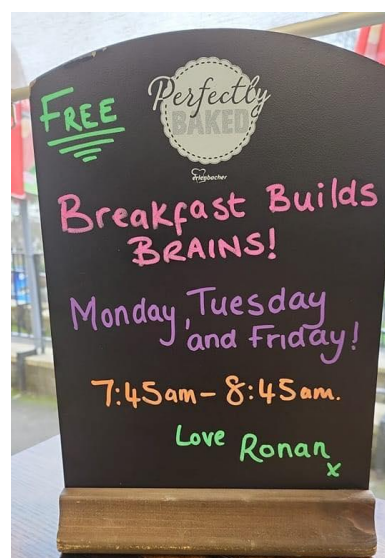 FREE
Perfectly
BAKED
erlenbacher
Breakfast Builds
BRAINS!
Monday, Tuesday
and Friday!
7:45am - 8:45am.
Love Ronan
x